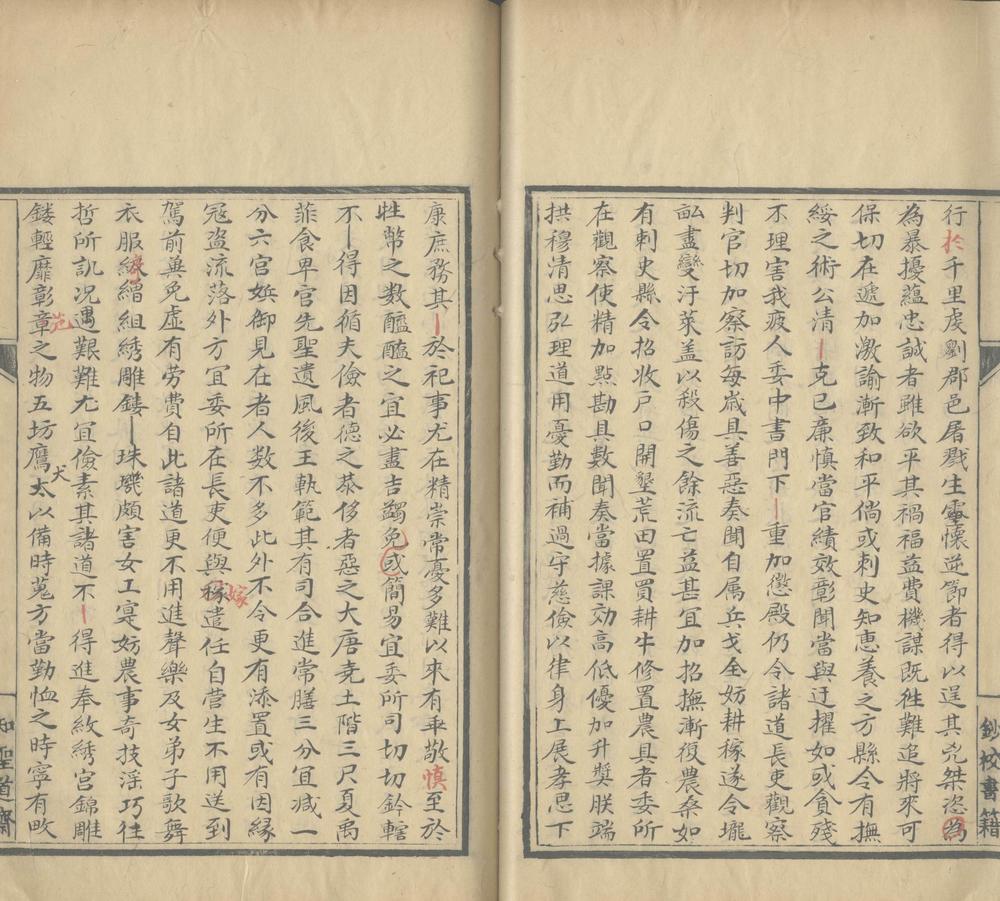 行於千里虔劉郡邑屠戮生靈懷逆節者得以逞其兇桀恣為
為暴擾蘊忠誠者雖欲平其禍福益費機謀既徃難追將來可
保切在遞加激諭漸致和平倘或刺史知惠養之方縣令有撫
綏之術公清克已廉慎當官績效彰聞當與迁擢如或貪殘
不理害我疲人委中書門下重加懲殿仍令諸道長吏觀察
判官切加察訪每歲具善惡奏聞自属兵戈全妨耕稼遂令壠
畝盡變汙萊盖以殺傷之餘流亡益甚宜加招撫漸復農桑如
有刺史縣令招收戸口開墾荒田置買耕牛修置農具者委所
在觀察使精加點勘具數聞奏當據課効高低優加升獎朕端
拱穆清思弘理道用憂勤而補過守慈儉以律身上展孝思下
鈔校書籍
康庶務其於祀事尤在精崇常憂多難以來有乖敬慎至於
牲幣之数醯醢之宜必盡吉蠲免或簡易宜委所司切切鈐轄
不得因循夫儉者德之恭侈者惡之大唐堯土階三尺夏禹
菲食卑宫先聖遺風後王軌範其有司合進常膳三分宜减一
分六宫嬪御見在者人数不多此外不令更有添置或有因縁
冦盗流落外方冝委所在長吏便與稼嫁遣任自营生不用送到
駕前兾免虚有劳費自此諸道更不用進聲樂及女弟子歌舞
衣服繚繒組綉雕鏤珠璣頗害女工寔妨農事奇技滛巧徃
哲所訊况遇艱難尤宜儉素其諸道不得進奉紋綉宫錦雕
鏤輕靡彰章之物五坊鷹犬太以備時蒐方當勤恤之時寧有畋
知聖道齋